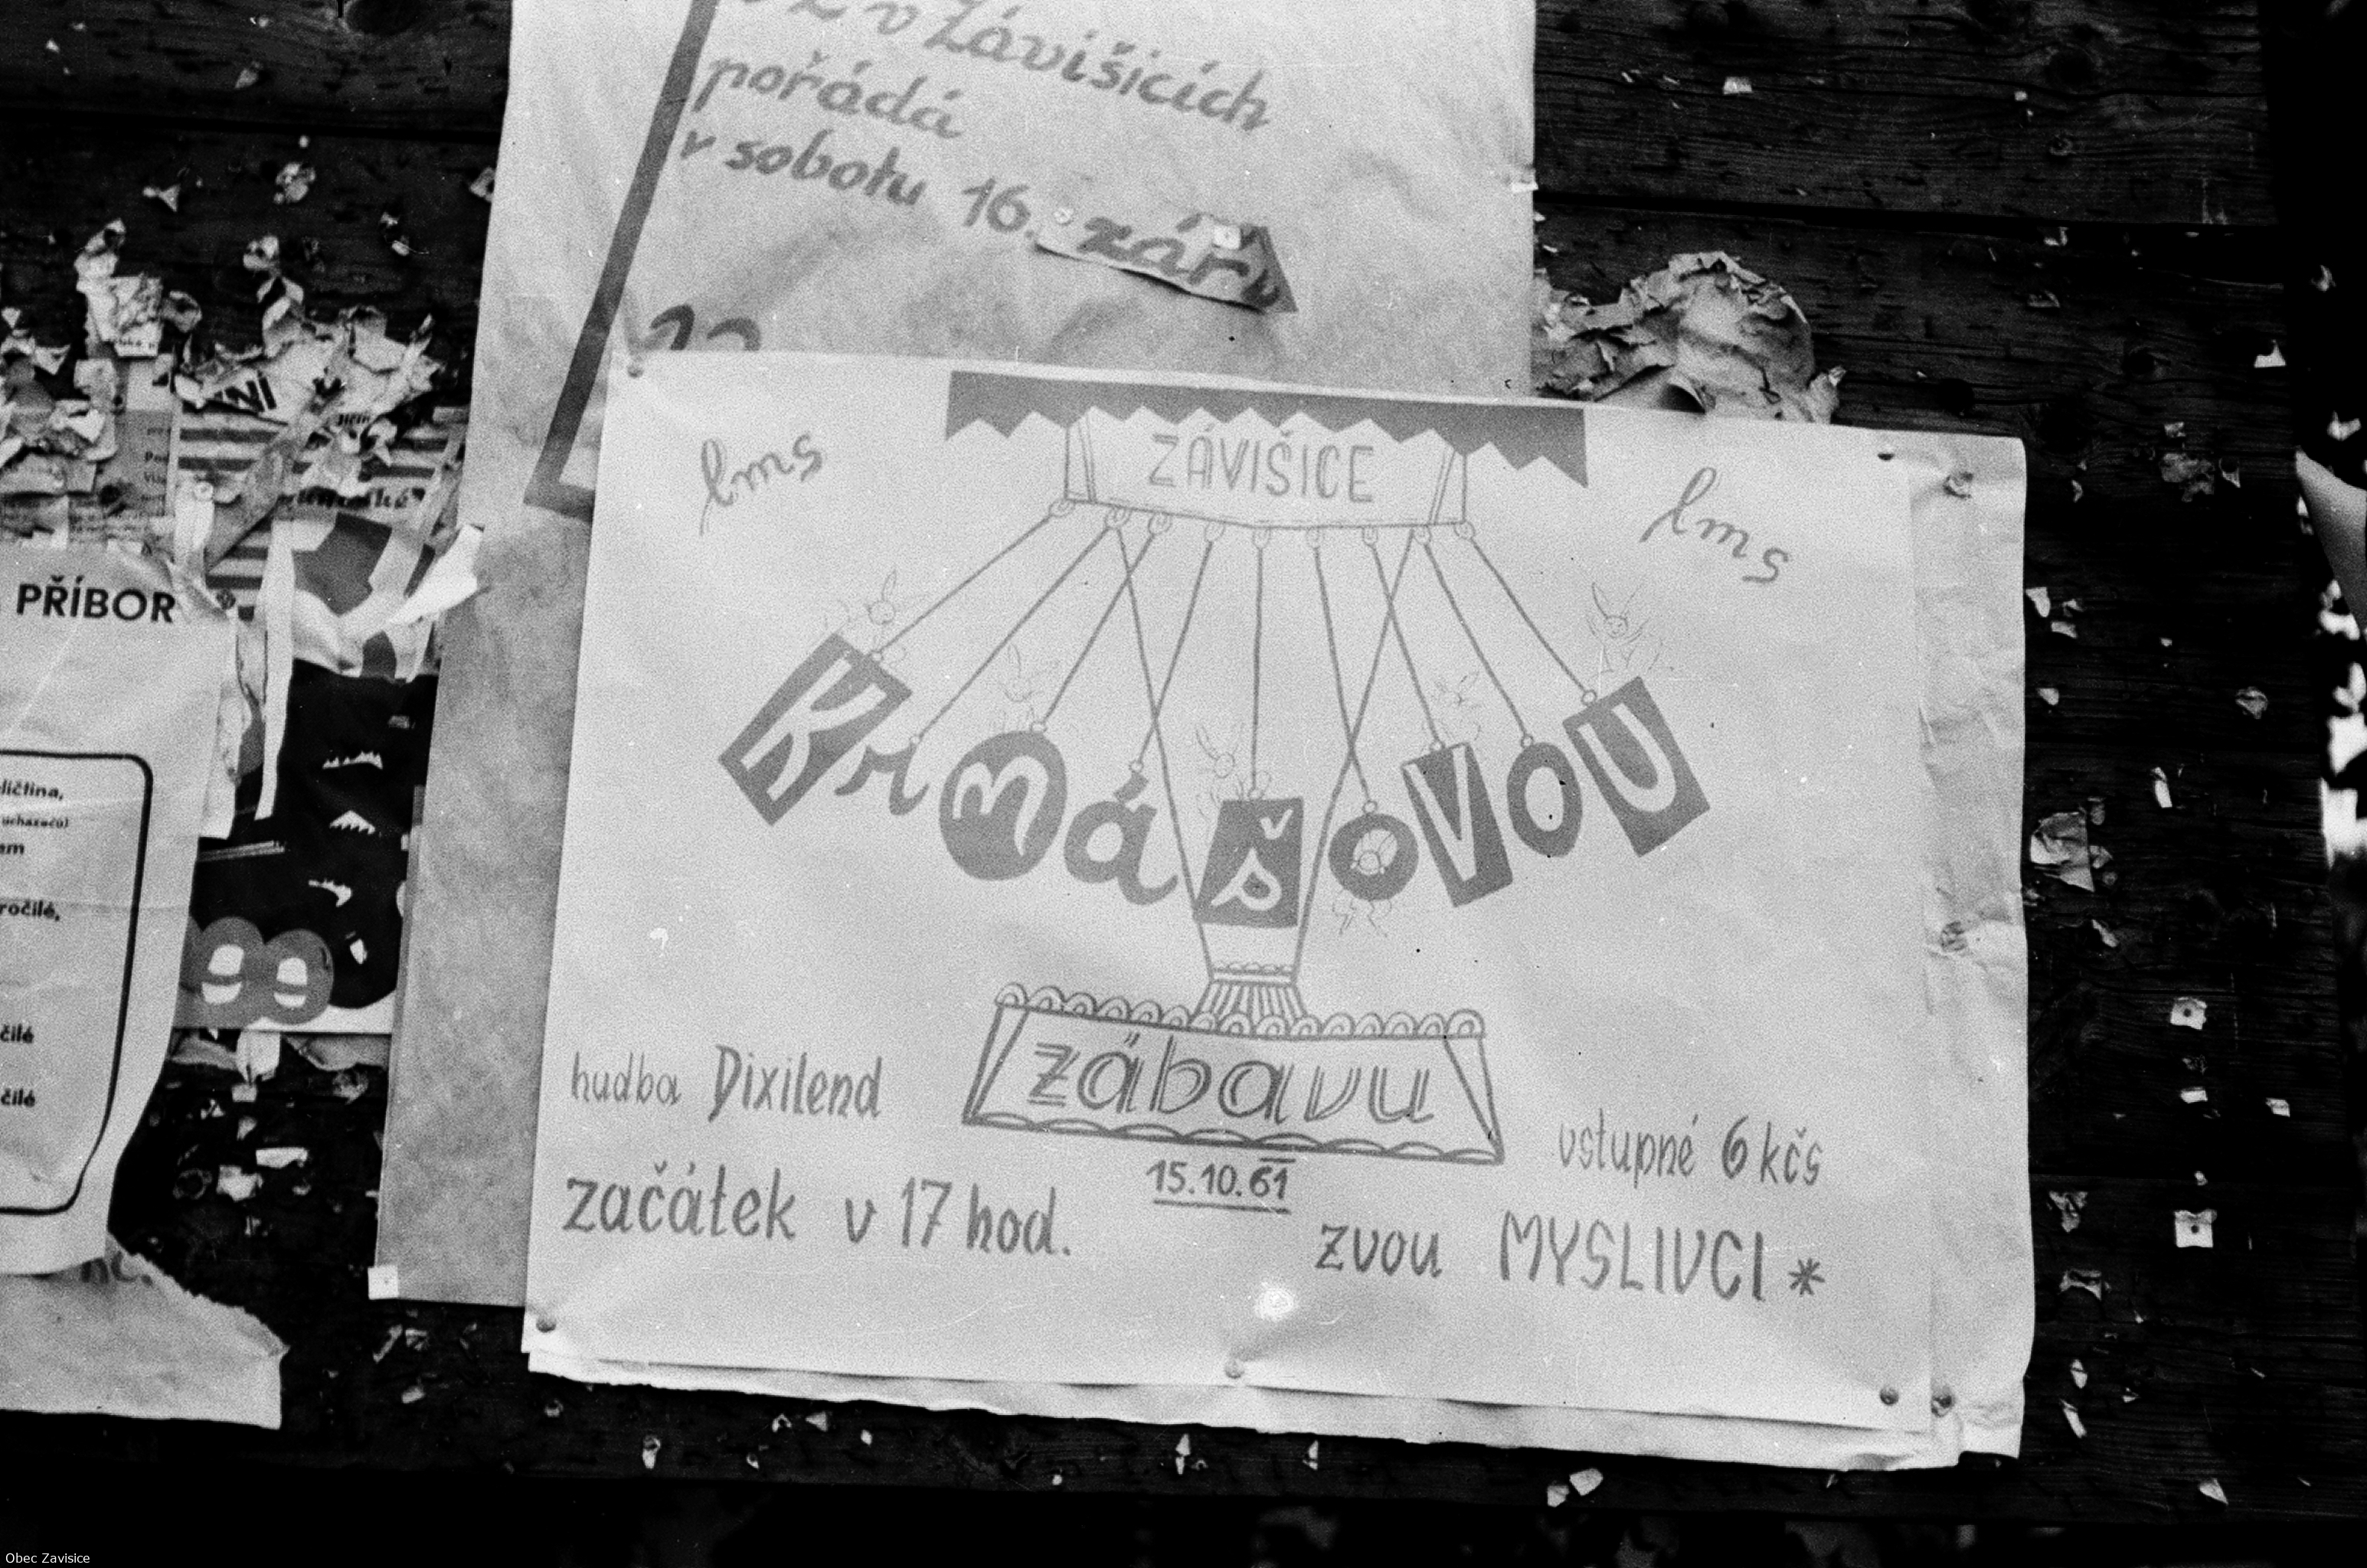 v Závišicích
pořádá
v sobotu 16. září
NÍ
PŘÍBOR
ličtina,
uchazečů)
em
ročilé,
čilé
čilé
lms
ZÁVIŠICE
lms
Krmášovou
zábavu
hudba Dixilend
vstupné 6 kčs
15.10.61
začátek v 17 hod.
zvou MYSLIVCI *
Obec Zavisice